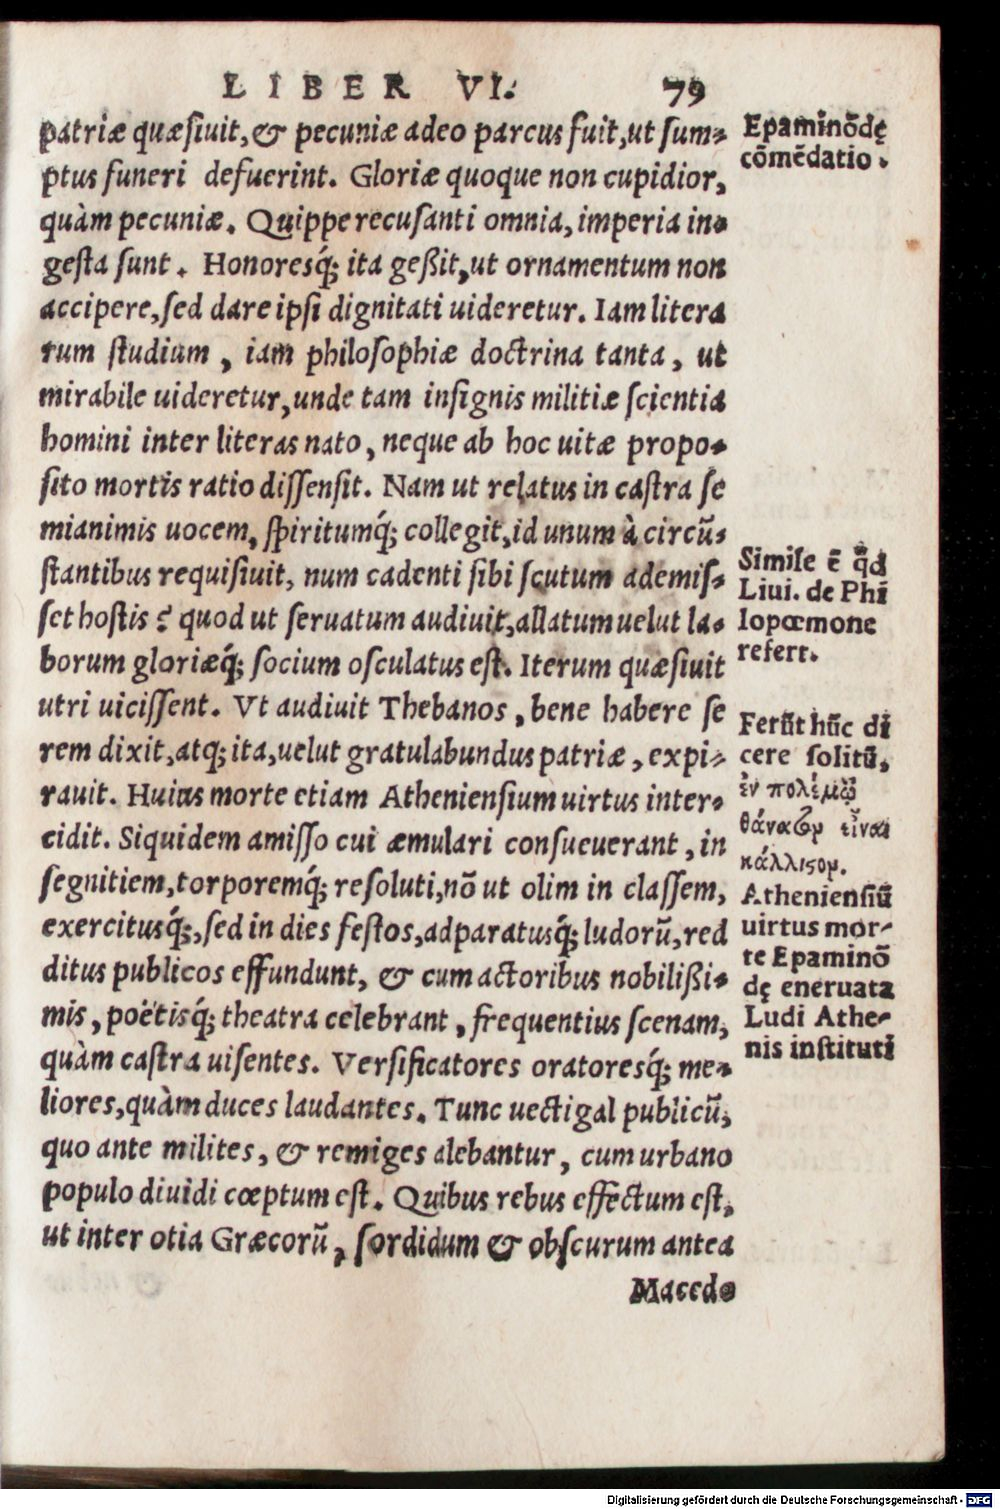 LIBER VI. 79
patriæ quæsiuit, & pecuniæ adeo parcus fuit, ut sum-
ptus funeri defuerint. Gloriæ quoque non cupidior,
quàm pecuniæ. Quippe recusanti omnia, imperia in-
gesta sunt. Honoresq́; ita geßit, ut ornamentum non
accipere, sed dare ipsi dignitati uideretur. Iam litera
rum studium, iam philosophiæ doctrina tanta, ut
mirabile uideretur, unde tam insignis militiæ scientia
homini inter literas nato, neque ab hoc uitæ propo-
sito mortis ratio dissensit. Nam ut relatus in castra se
mianimis uocem, spiritumq́; collegit, id unum à circũ-
stantibus requisiuit, num cadenti sibi scutum ademis-
set hostis? quod ut seruatum audiuit, allatum uelut la-
borum gloriæq́; socium osculatus est. Iterum quæsiuit
utri uicissent. Vt audiuit Thebanos, bene habere se
rem dixit, atq; ita, uelut gratulabundus patriæ, expi-
rauit. Huius morte etiam Atheniensium uirtus inter-
cidit. Siquidem amisso cui æmulari consueuerant, in
segnitiem, torporemq́; resoluti, nõ ut olim in classem,
exercitusq́;, sed in dies festos, adparatusq́; ludorũ, red
ditus publicos effundunt, & cum actoribus nobilißi-
mis, poëtisq́; theatra celebrant, frequentius scenam,
quàm castra uisentes. Versificatores oratoresq́; me-
liores, quàm duces laudantes. Tunc uectigal publicũ,
quo ante milites, & remiges alebantur, cum urbano
populo diuidi cœptum est. Quibus rebus effectum est,
ut inter otia Græcorũ, sordidum & obscurum antea
Macedo
Epaminõdę
cõmẽdatio.
Simile ẽ qd̃
Liui. de Phi
lopœmone
refert.
Ferũt hũc di
cere solitũ,
ἐν πολέμῳ
θάνατον εἶναι
κάλλιϛον.
Atheniensiũ
uirtus mor-
te Epaminõ
dę eneruata
Ludi Athe-
nis instituti
Digitalisierung gefördert durch die Deutsche Forschungsgemeinschaft - DFG